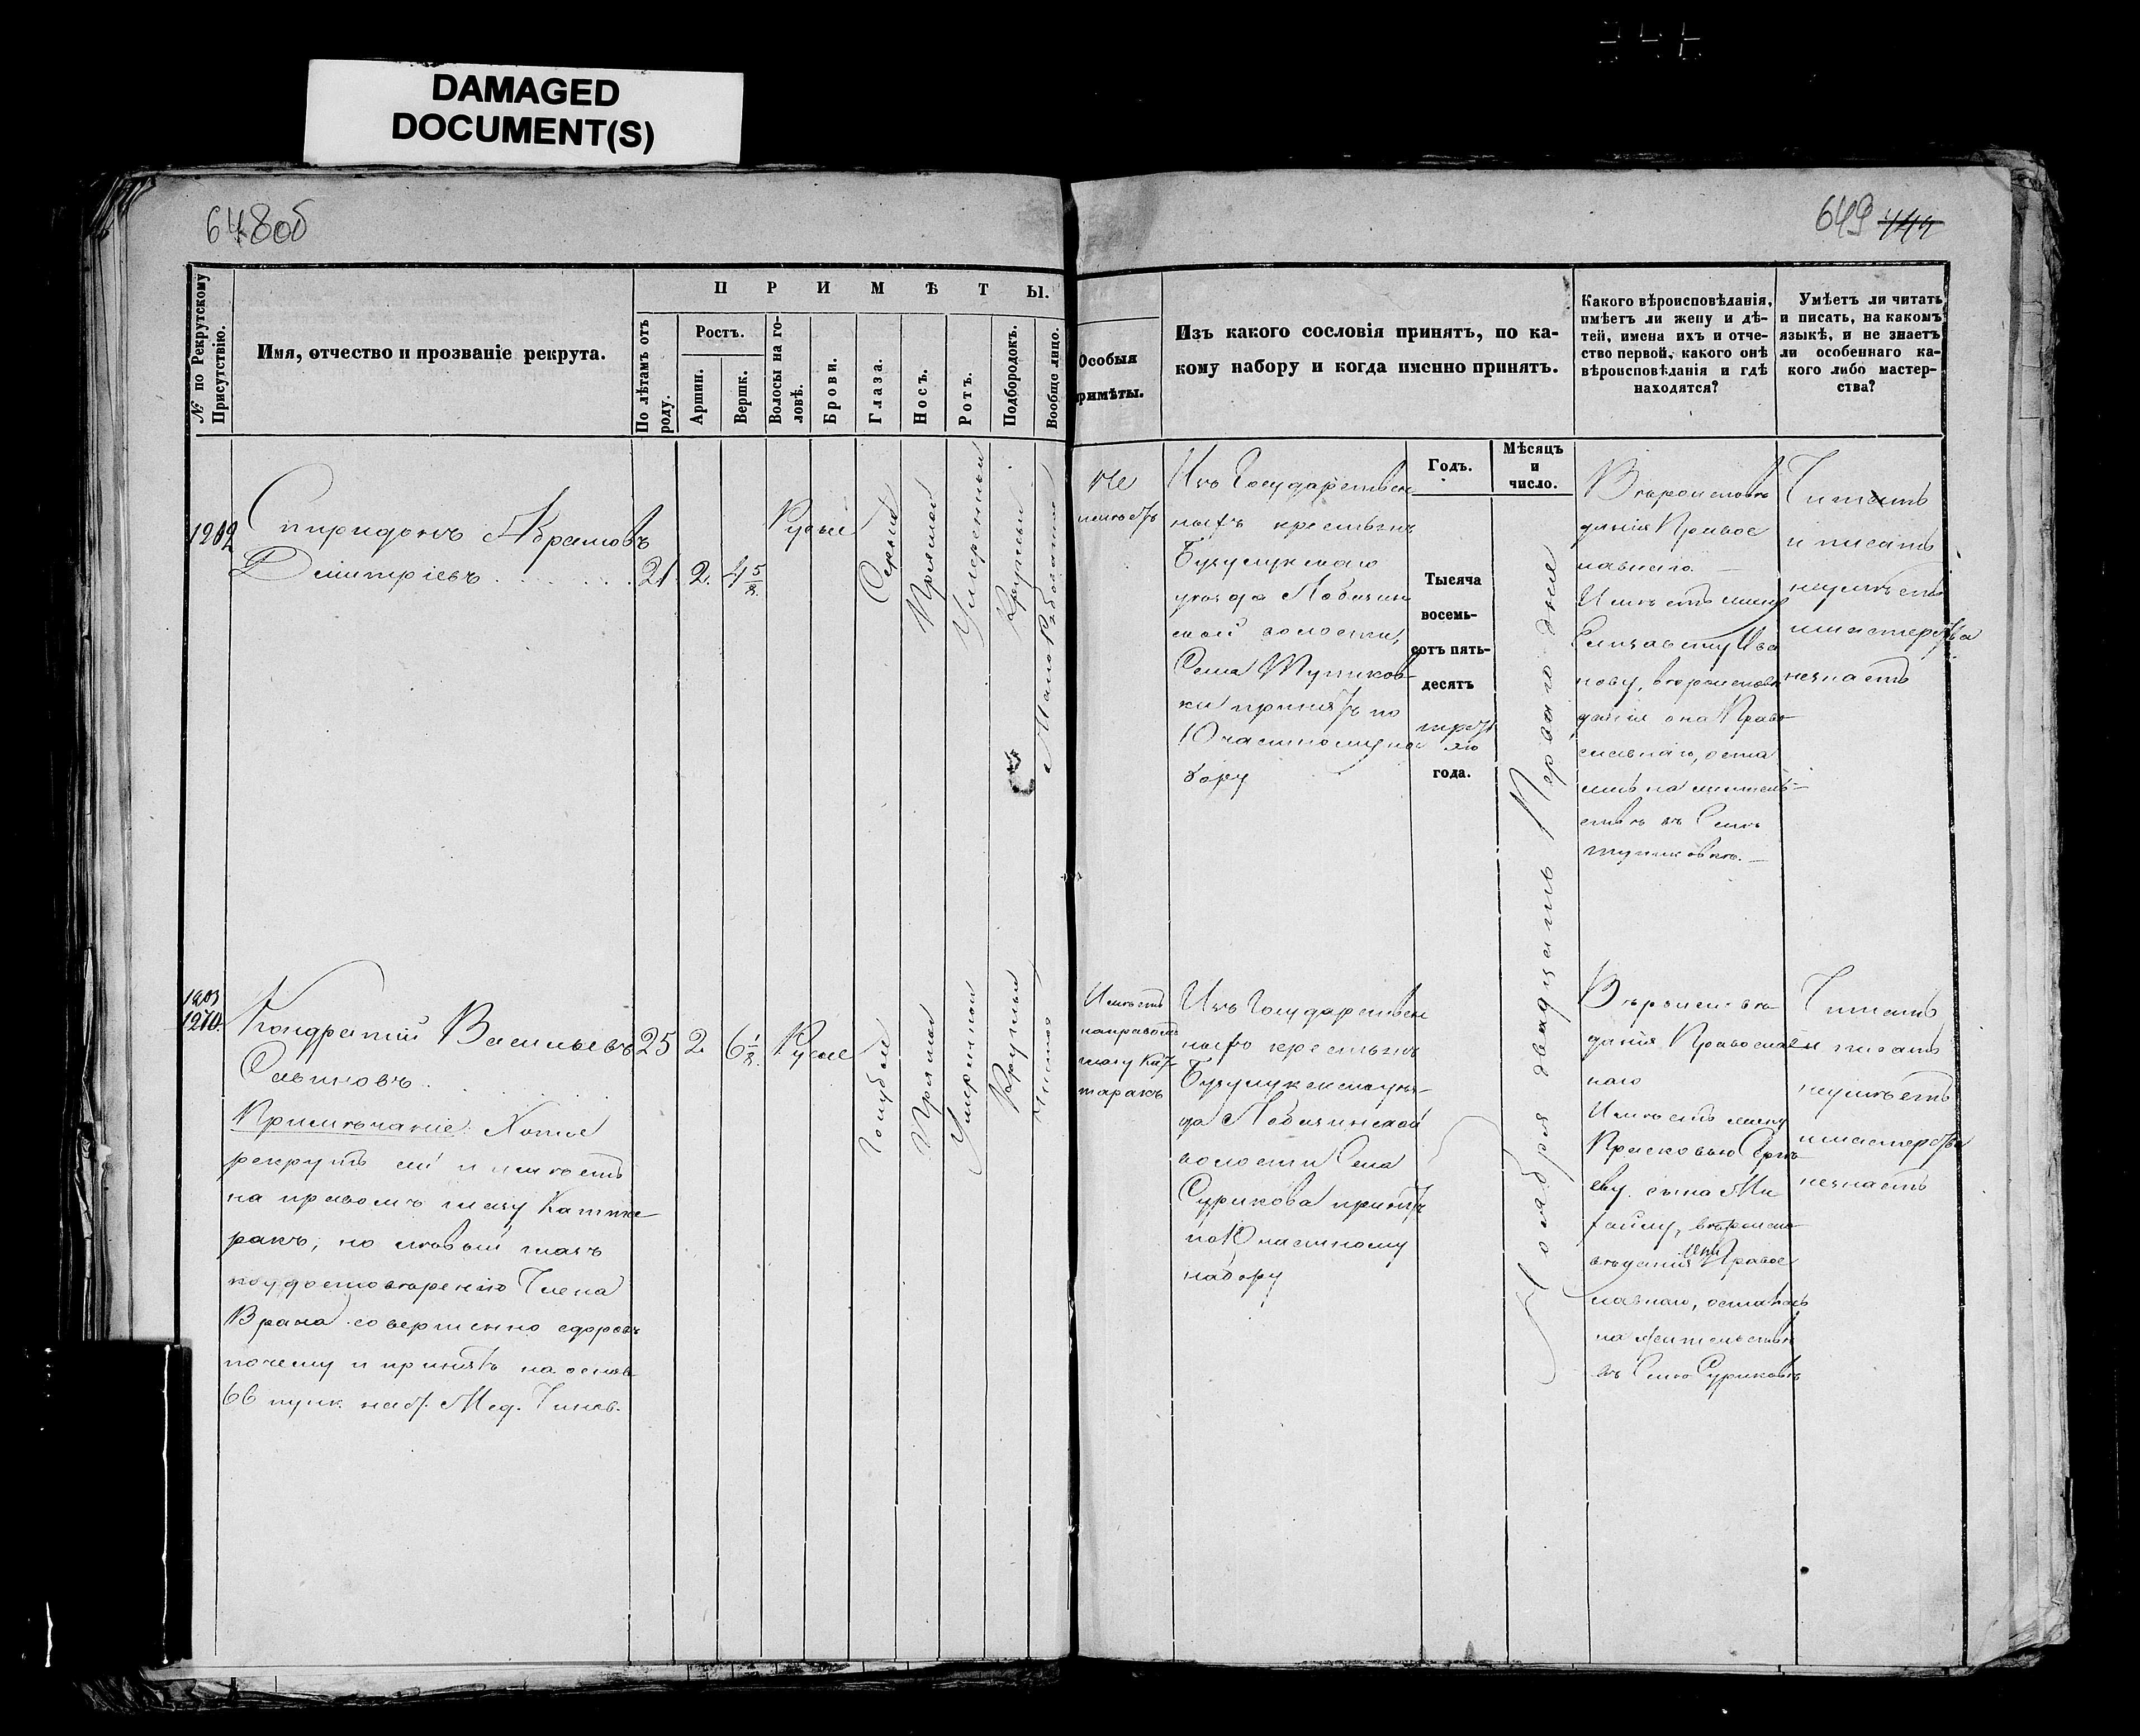 DAMAGED
DOCUMENT(S)
648об
649 442
№ по Рекрутскому
Присутствію.
Имя, отчество и прозваніе рекрута.
ПРИМѢТЫ.
По лѣтамъ отъ
роду.
Ростъ.
Аршин.
Вершк.
Волосы на го-
ловѣ.
Брови.
Глаза.
Носъ.
Ротъ.
Подбородокъ.
Вообще лицо.
Особыя
римѣты.
Изъ какого сословія принятъ, по ка-
кому набору и когда именно принятъ.
Какого вѣроисповѣданія,
имѣетъ ли жену и дѣ-
тей, имена ихъ и отче-
ство первой, какого онѣ
вѣроисповѣданія и гдѣ
находятся?
Умѣетъ ли читать
и писать, на какомъ
языкѣ, и не знаетъ
ли особеннаго ка-
кого либо мастер-
ства?
Годъ.
Мѣсяцъ
и
число.
1202
Спиридонъ Абрамовъ
Дмитріевъ
21 2. 4 5/8
Русые
Серые
Прямой
Умеренный
Круглый
Малорябоватое
Не
имѣетъ
Изъ Государствен
ныхъ крестьянъ
Бузулукскаго
уезда Лобазин
ской волости,
Села Тупиков-
ки принятъ по
10 частному на
бору
Тысяча
восемь-
сотъ пять-
десятъ
третьяго
года.
Ноября двадцать Перваго дня
Вѣроисповѣ
данія Правос
лавнаго.
Имѣетъ жену
Елизавету Ива
нову, вѣроисповѣ
данія она Право
славнаго, оста
лась на житель-
ствѣ въ Селѣ
Тупиковкѣ.
Читать
и писать
неумѣетъ
и мастерства
незнаетъ
1203
1210.
Кондратій Васильевъ
Савиновъ
25 2 6 1/8
Русые
Голубые
Прямой
Умеренный
Круглый
Чистое
Примѣчаніе: Хотя
рекрутъ сей и имѣетъ
на правомъ глазу Катта
ракъ, но левый глазъ
поудостоверенію Члена
Врача совершенно здоровъ
почему и принятъ на основ
66 пунк. наст. Мед. Чинов.
Имѣетъ
направомъ
глазу Кат-
таракъ
Изъ Государствен
ныхъ крестьянъ
Бузулукскаго уез-
да Лобазинской
волости Села
Сурикова принятъ
по 10 частному
набору
Вѣроисповѣ
данія Православ
наго
Имѣетъ жену
Прасковью Серге
еву, сына Ми
хайлу, вѣроиспо
вѣданія они Правос
лавнаго, остались
на жительствѣ
въ Селѣ Суриковѣ
Читать
и писать
неумѣетъ
и мастерства
незнаетъ